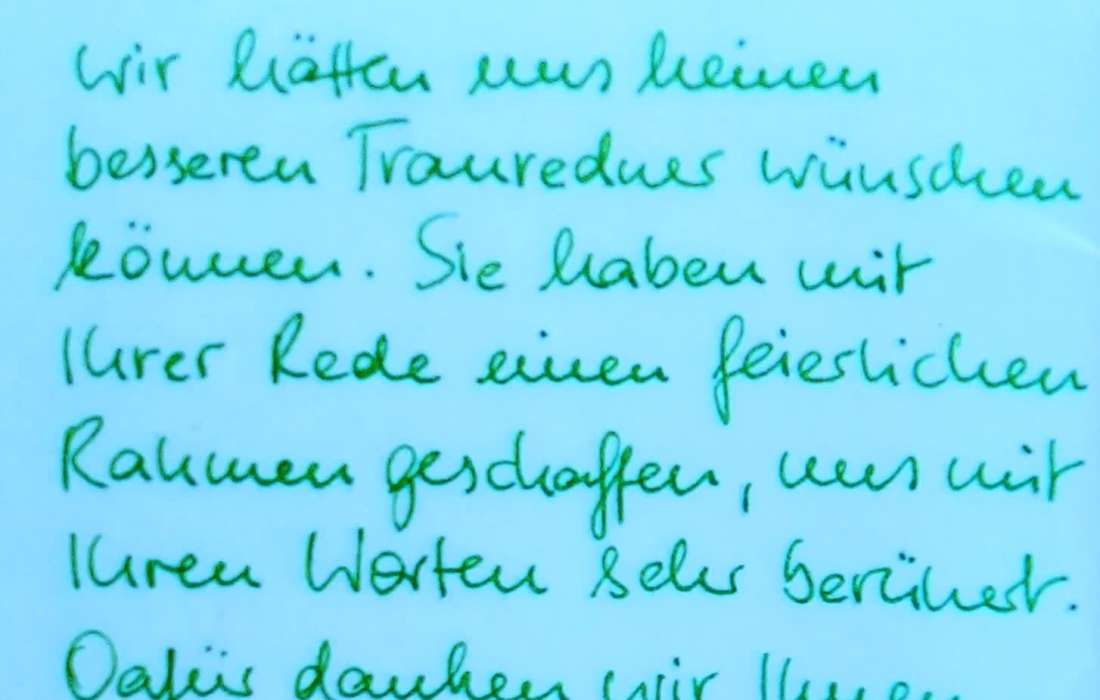 Wir hätten uns keinen
besseren Trauredner wünschen
können. Sie haben mit
Ihrer Rede einen feierlichen
Rahmen geschaffen, uns mit
Ihren Worten sehr berührt.
Dafür danken wir Ihnen